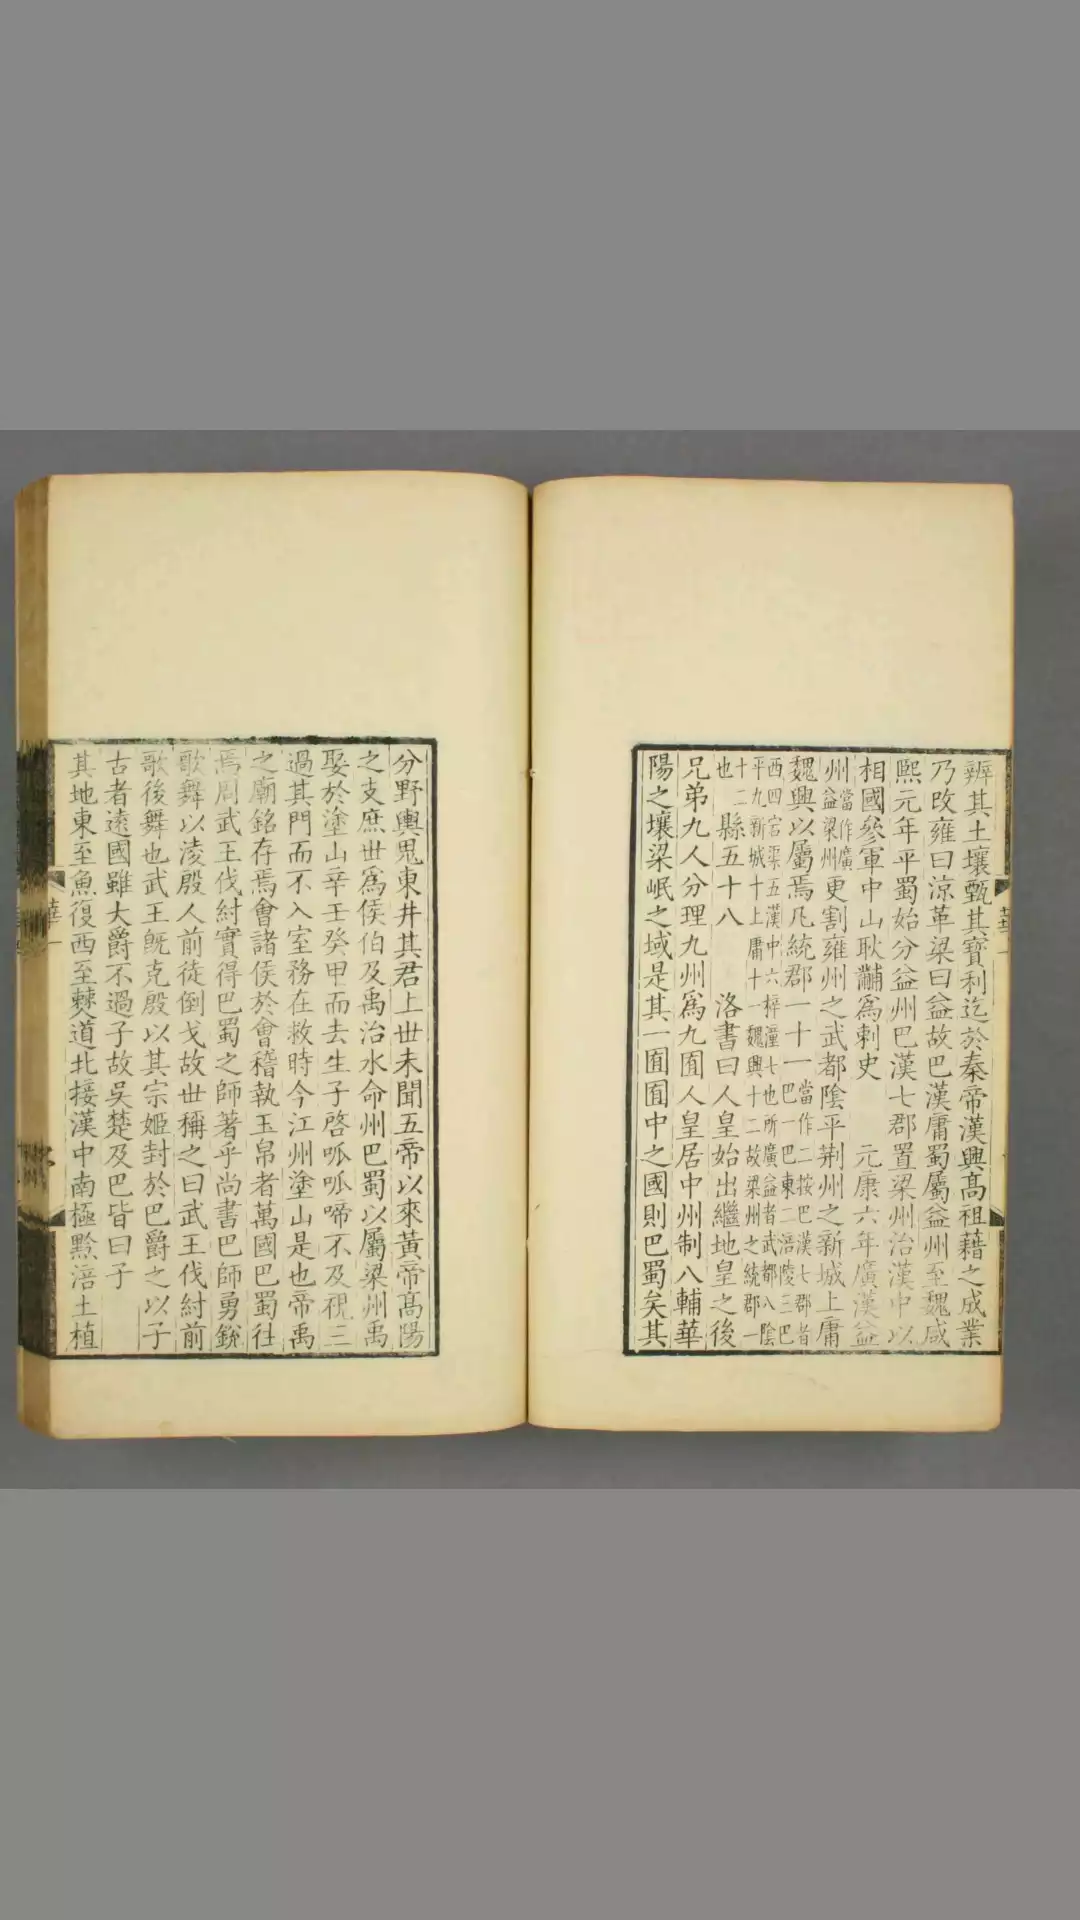 辨其土壤甄其寶利迄於秦帝漢興高祖藉之成業
乃改雍曰涼革梁曰益故巴漢庸蜀屬益州至魏咸
熙元年平蜀始分益州巴漢七郡置梁州治漢中以
相國參軍中山耿黼為刺史　元康六年廣漢益
州當作廣益梁州更割雍州之武都陰平荆州之新城上庸
魏興以屬焉凡統郡一十一當作二按巴漢七郡者巴一巴東二涪陵三巴
西四宕渠五漢中六梓潼七也所廣益者武都八陰平九新城十上庸十一魏興十二故梁州之統郡一
十二也縣五十八　洛書曰人皇始出繼地皇之後
兄弟九人分理九州為九囿人皇居中州制八輔華
陽之壤梁岷之域是其一囿囿中之國則巴蜀矣其
分野輿鬼東井其君上世未聞五帝以來黃帝高陽
之支庶世為侯伯及禹治水命州巴蜀以屬梁州禹
娶於塗山辛壬癸甲而去生子啓呱呱啼不及視三
過其門而不入室務在救時今江州塗山是也帝禹
之廟銘存焉會諸侯於會稽執玉帛者萬國巴蜀往
焉周武王伐紂實得巴蜀之師著乎尚書巴師勇銳
歌舞以淩殷人前徒倒戈故世稱之曰武王伐紂前
歌後舞也武王既克殷以其宗姬封於巴爵之以子
古者遠國雖大爵不過子故吳楚及巴皆曰子
其地東至魚復西至僰道北接漢中南極黔涪土植
華一